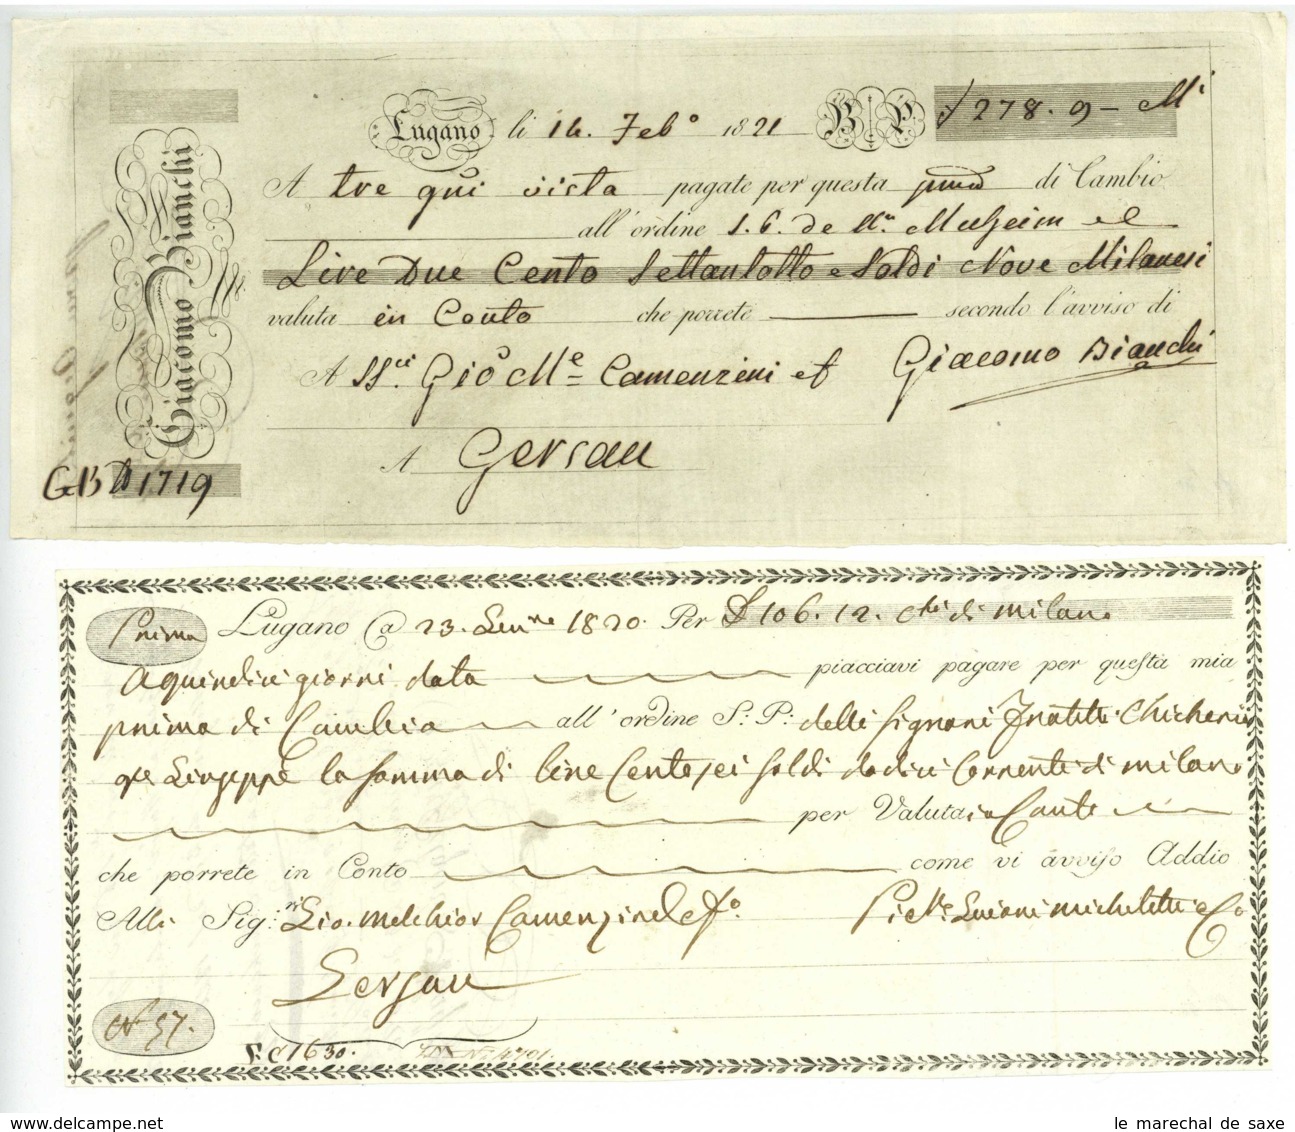 Lugano li 14. Febº 1821 B P 278. 9 — Mi
A tre gni vista pagate per questa pma di Cambio
all'ordine S. P. de Mulheim et
Lire Due Cento Settantotto e Soldi Nove Milanesi
valuta in Conto che porrete secondo l'avviso di
A SSri Gioº Me Camenzini et f Giacomo Bianchi
A Gersau
Giacomo Bianchi
GB No 1719
Prima Lugano @ 23. 1820. Per 106. 12. di milano
a quindici giorni data piacciavi pagare per questa mia
prima di Cambio all'ordine S. P. delli Signori Fratelli
qm Giuseppe la somma di lire Centosei soldi dodici Correnti di milano
per Valuta in Conto
che porrete in Conto come vi avviso Addio
Alli Sig.ri Gio. Melchior Camenzind e fº.
Gersau
No 57.
1630.
le marechal de saxe